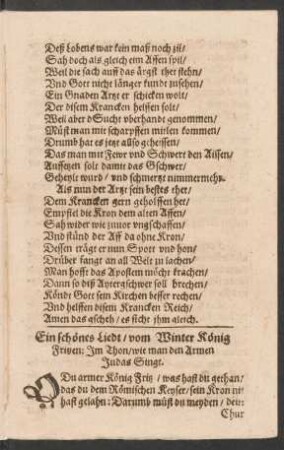 Deß Lobens war kein maß noch zil/
Sah doch als gleich eim Affen spil/
Weil die sach auff das ärgst thet stehn/
Vnd Gott nicht länger kundt zusehen/
Ein Gnaden Artzt er schicken wolt/
Der disem Krancken helffen solt/
Weil aber d Sucht vberhandt genommen/
Müst man mit scharpffen mitlen kommen/
Drumb hat es jetzt allso geheissen/
Das man mit Fewr vnd Schwert den Aissen/
Auffetzen solt damit das Gschwer/
Geheylt wurd/ vnd schmertzt nimmermehr.
Als nun der Artzt sein bestes thet/
Dem Krancken gern geholffen het/
Empfiel die Kron dem alten Affen/
Sah wider wie zuuor vngschaffen/
Vnd stünd der Aff da ohne Kron/
Dessen trägt er nun Spott vnd hon/
Drüber fangt an all Welt zu lachen/
Man hofft das Apostem möcht krachen/
Dann so diß Aytergschwer soll brechen/
Köndt Gott sein Kirchen besser rechen/
Vnd helffen disem Krancken Reich/
Amen das gscheh/ es sicht jhm gleich.
Ein schönes Liedt/ vom Winter König
Fritzen: Im Thon/ wie man den Armen
Judas Singt.
O Du armer König Fritz/ was hast du gethan/
das du dem Römischen Keyser/ sein Kron ni-
hast gelahn: Darumb müst du meyden/ dein
Chur